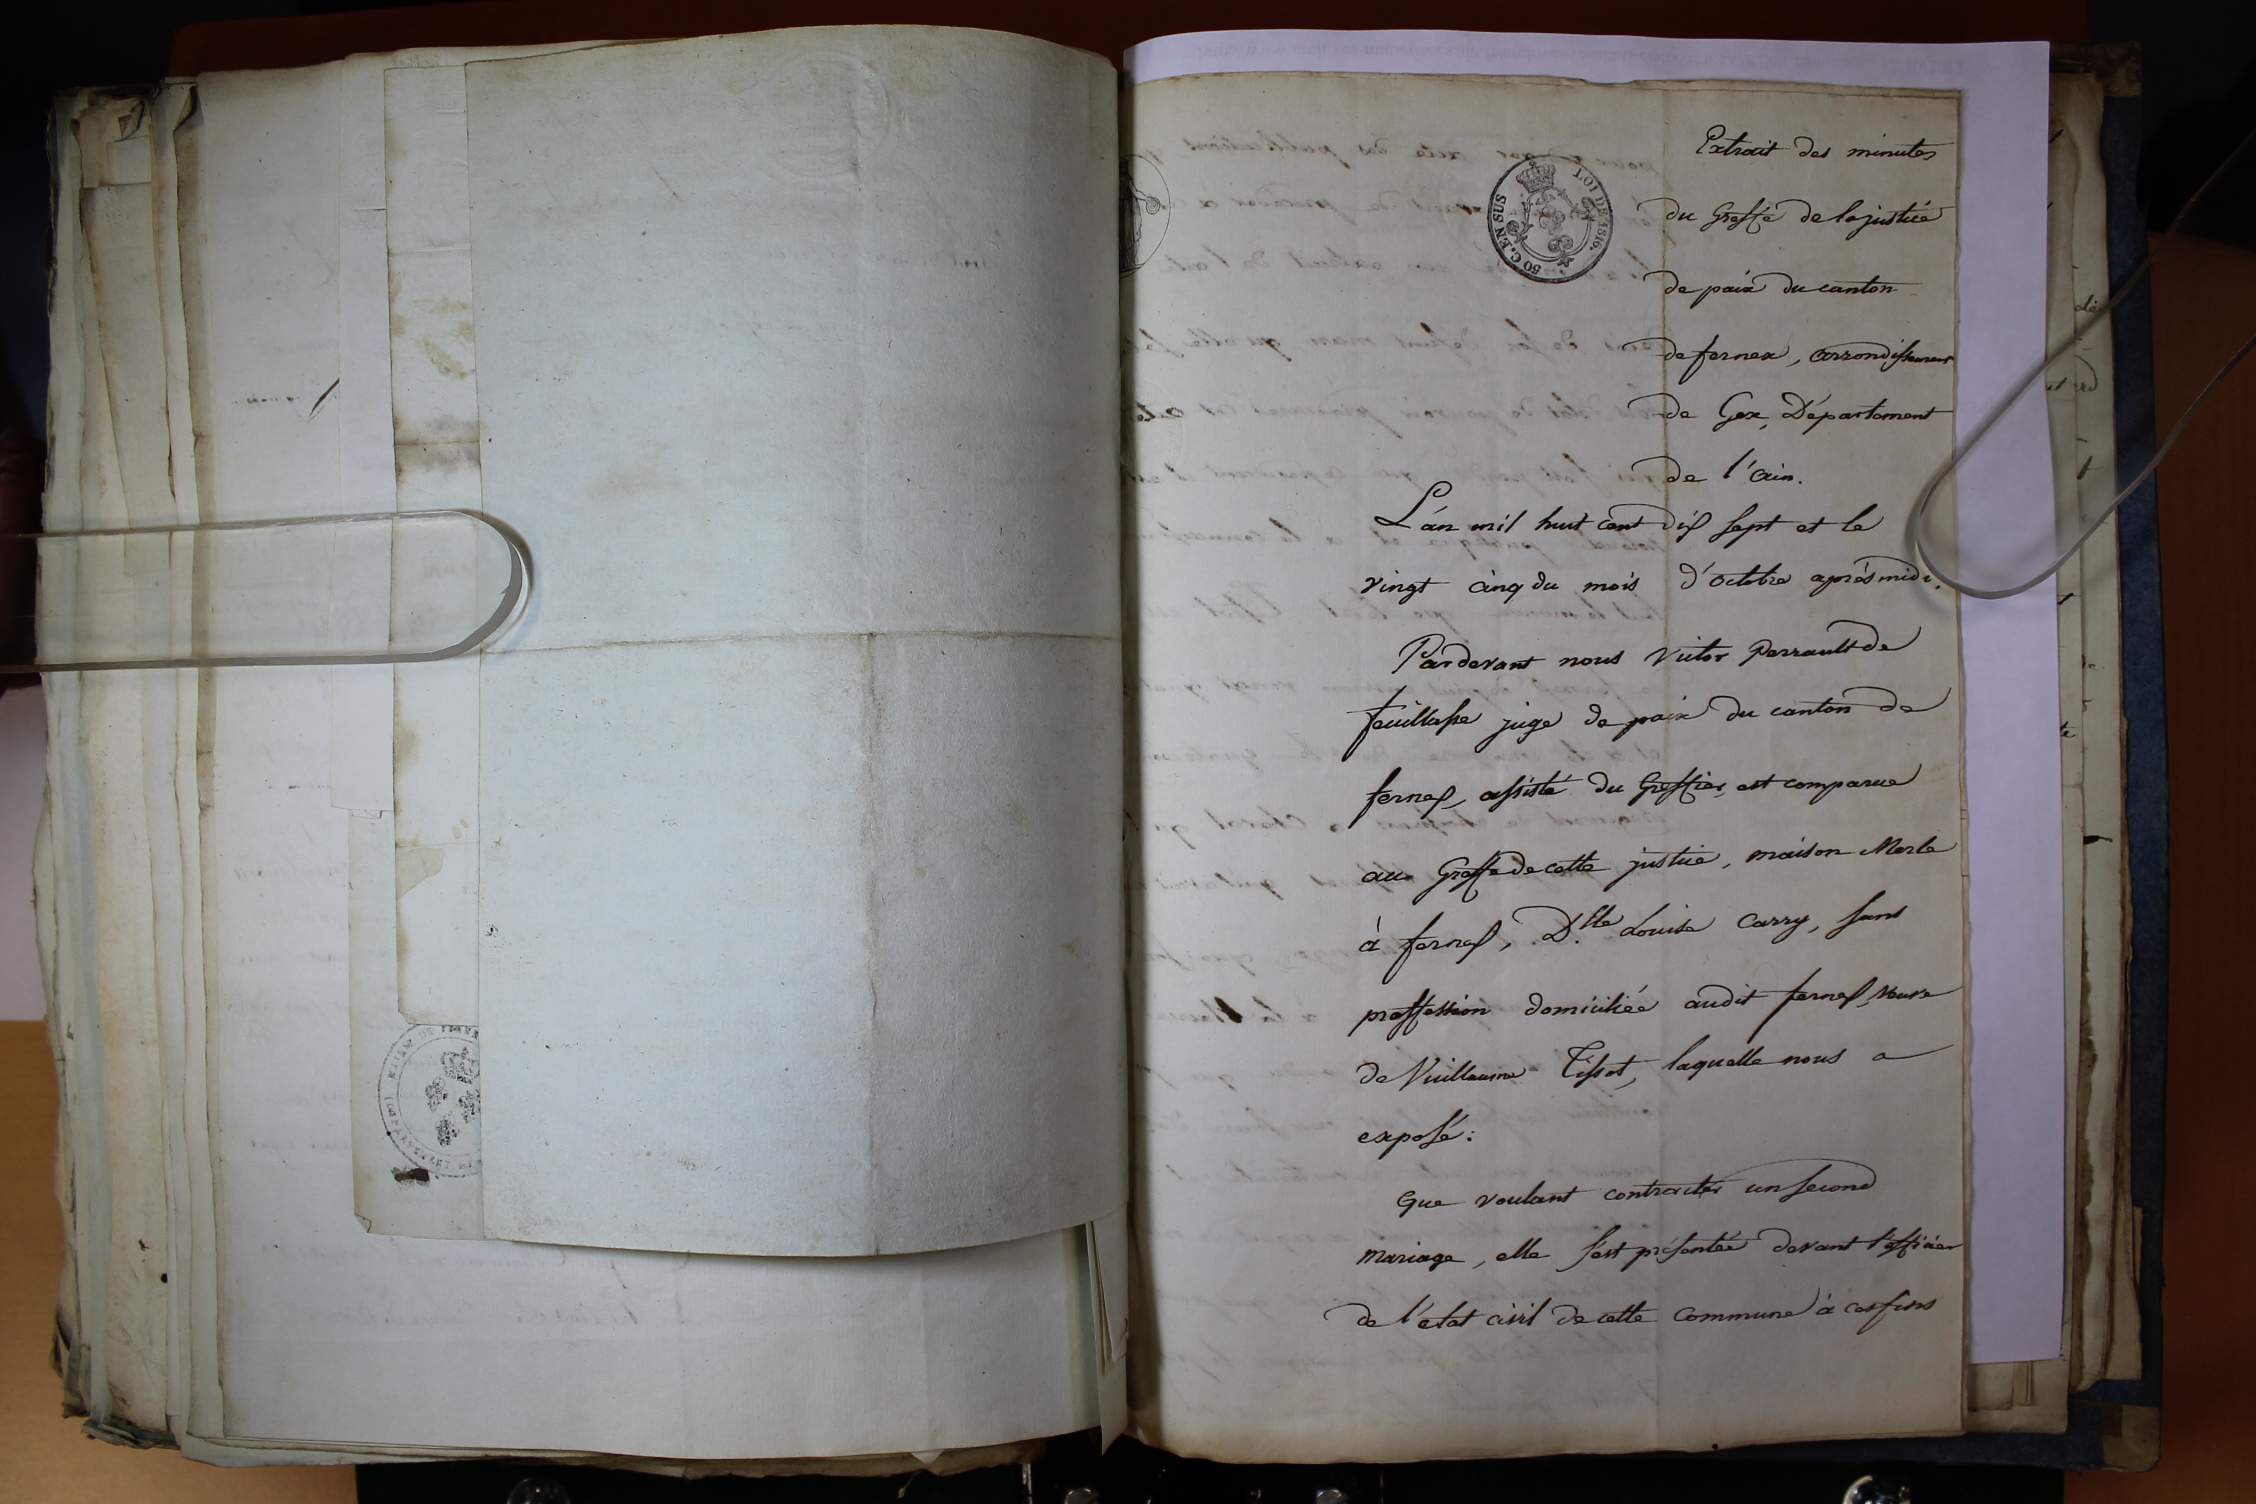 Extrait des minutes
du Greffe de la justice
de paix du canton
de fernex, arrondissement
de Gex, Département
de l'ain.
LOI DE 1816.
50 C. EN SUS
L'an mil huit cent dix sept et le
vingt cinq du mois d'octobre après midi.
Pardevant nous Victor Perrault de
feuillasse juge de paix du canton de
fernex, assisté du Greffier est comparue
au Greffe de cette justice, maison Merle
à fernex, D.lle Louise Carry, sans
proffession domiciliée audit fernex veuve
de Vuillaume Tissot, laquelle nous a
exposé:
Que voulant contracter un second
mariage, elle s'est présentée devant l'officier
de l'etat civil de cette commune à ces fins